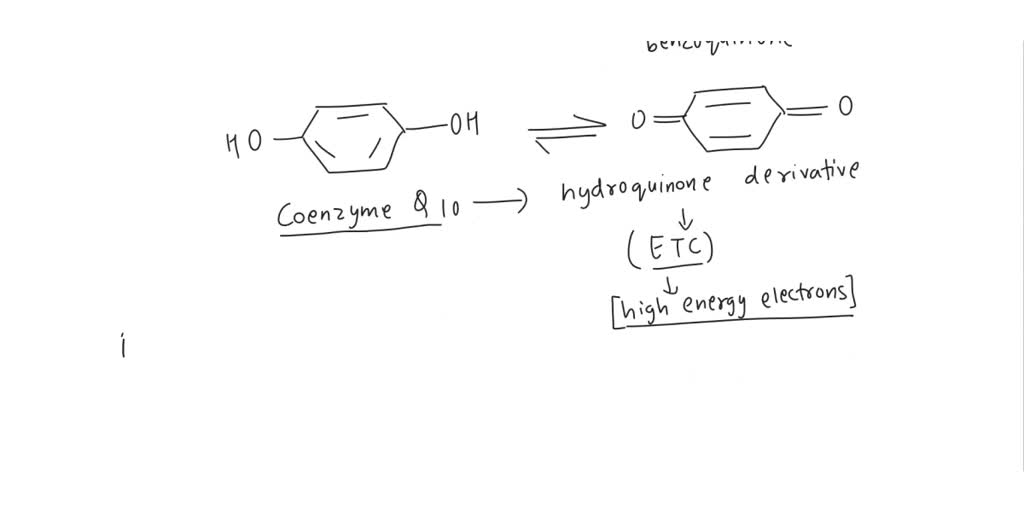 benzoquinone
HO OH ⇌ O O
Coenzyme Q10 → hydroquinone derivative
↓
(ETC)
↓
[high energy electrons]
i